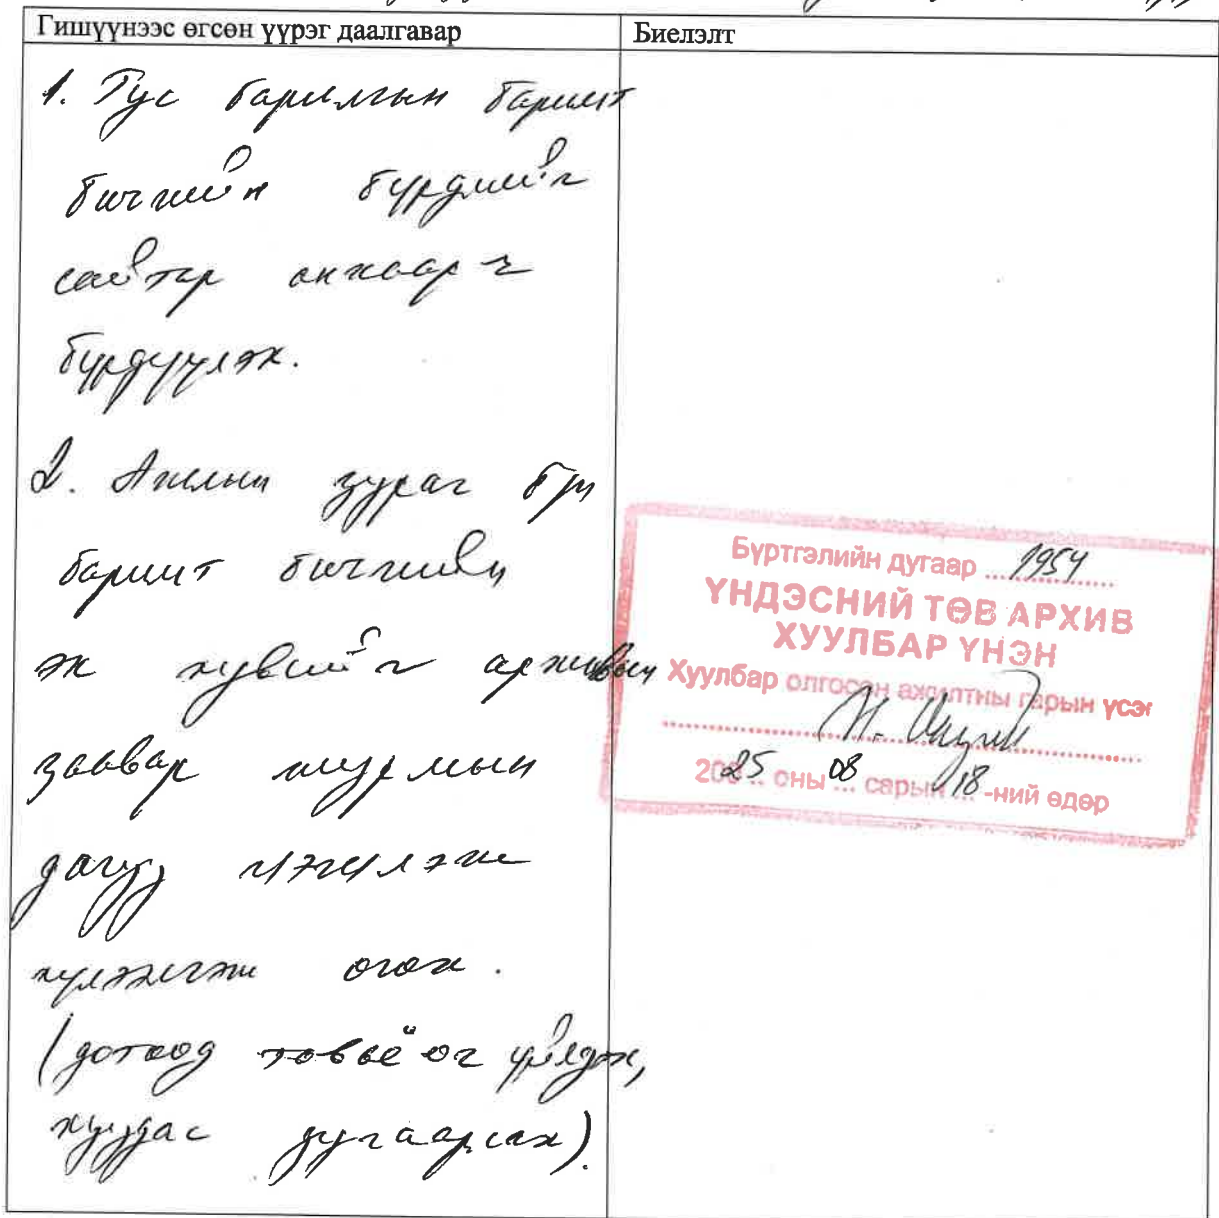 Гишүүнээс өгсөн үүрэг даалгавар
Биелэлт
1. Тус барилгын баримт
бичгийн бүрдлийг
сайтар анхаарч
бүрдүүлэх.
2. Ажлын зураг
баримт бичгийн
эх хувийг архивын
заавар журмын
дагуу цэгцлэж
хүлээлгэж өгөх.
(дотоод товъёог үйлдэх,
хуудас дугаарлах).
Бүртгэлийн дугаар ... 1954
ҮНДЭСНИЙ ТӨВ АРХИВ
ХУУЛБАР ҮНЭН
Хуулбар олгосон ажилтны гарын үсэг
2025 оны 08 сарын 18 -ний өдөр